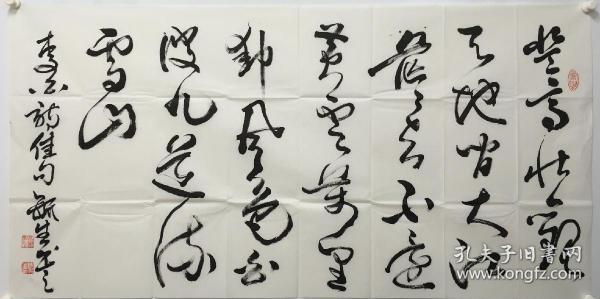 登高壮观
天地间大江
茫茫去不还
黄云万里
动风色白
波九道流
雪山
李白诗佳句毓生书之
孔夫子旧书网
www.kongfz.com